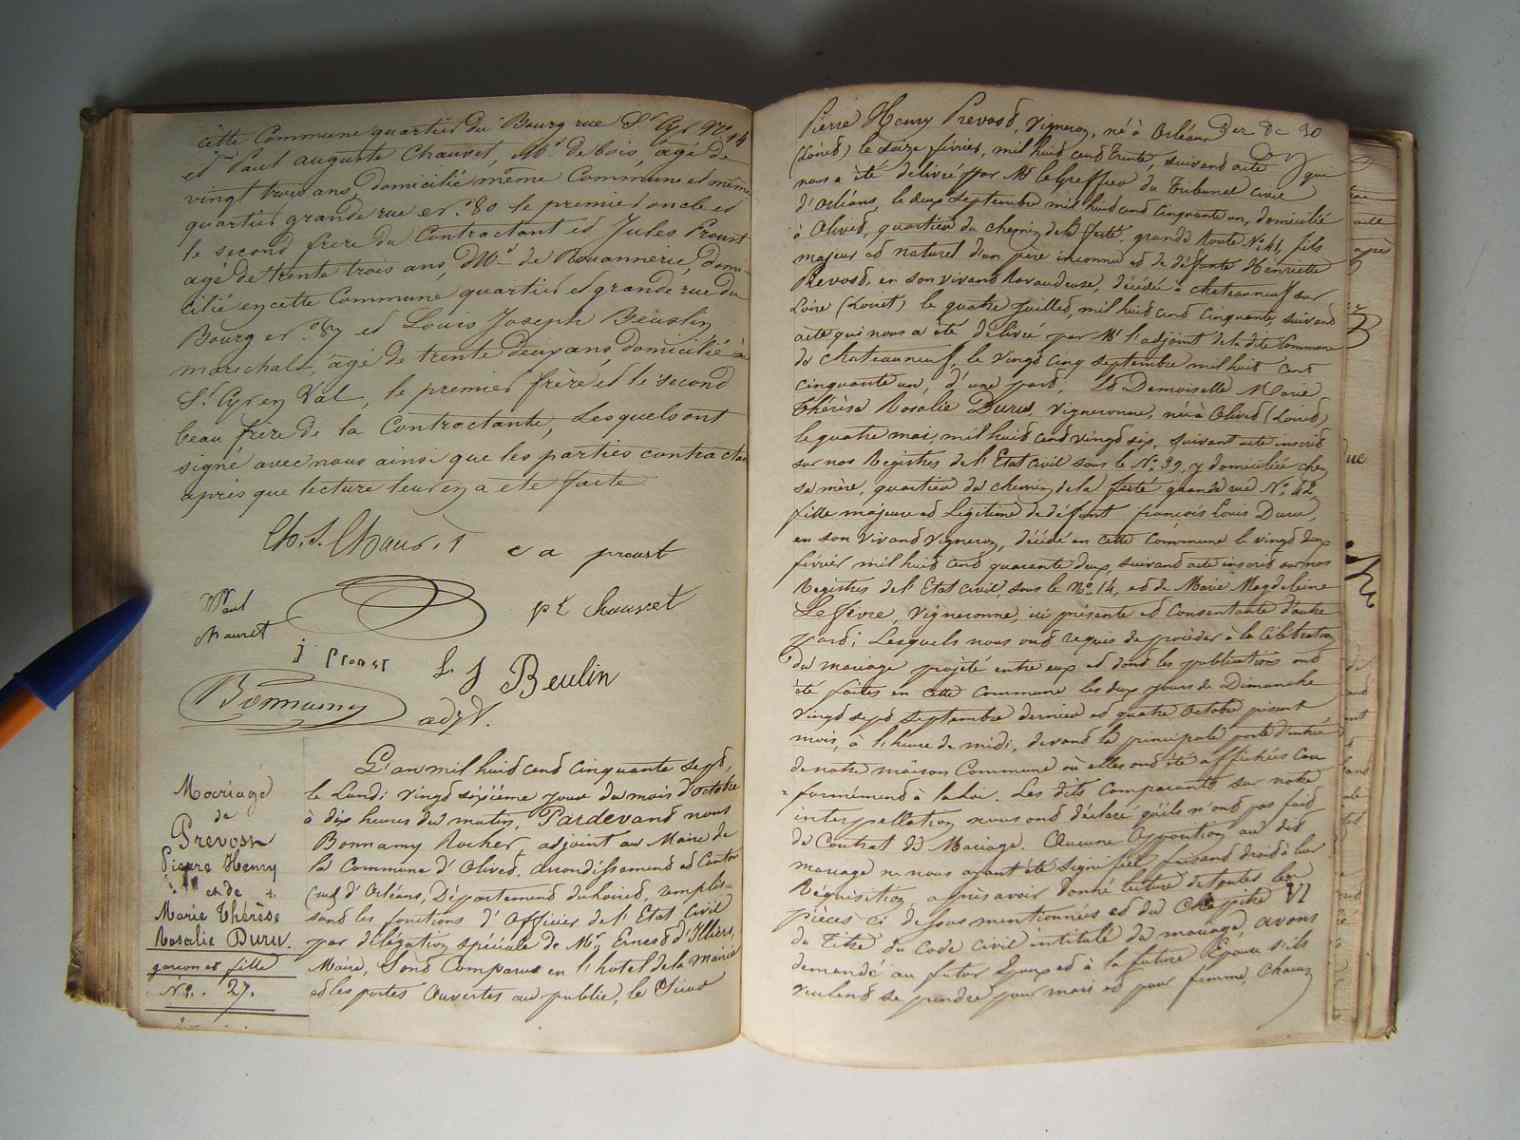 cette Commune quartier du Bourg rue St Cyr No 14
et Paul auguste Chauvet, Md de bois, agé de
vingt trois ans domicilié même Commune et même
quartier grande rue No 80 le premier oncle et
le second frère du Contractant et Jules Proust
agé de trente trois ans, Md de Rouannerie, domi-
cilié en cette Commune quartier et grande rue du
Bourg No 87 et Louis Joseph Beulin
marechal, agé de trente deux ans domicilié à
St Cyr en Val, le premier frère et le second
beau frère de la Contractante, Lesquels ont
signé avec nous ainsi que les parties contractan
après que lecture leur en a été faite
c a proust
Paul
chauvet
pl chauvet
j Proust
L J Beulin
Bonnamy
adjt.
Mariage
de
Prevost
Pierre Henry
et de
Marie Thérèse
Rosalie Duru.
garçon et fille
No. 27.
L'an mil huit cent cinquante sept,
le Lundi vingt sixième jour du mois d'octobre
à dix heures du matin, Pardevant nous
Bonnamy Rocher, adjoint au Maire de
la Commune d'Olivet, arrondissement et Canton
sud d'Orléans, Département du Loiret, remplis-
sant les fonctions d'Officier de l'Etat Civil
par délégation spéciale de Mr Ernest d'Illiers,
Maire, Sont Comparus en l'hotel de la Mairie
et les portes Ouvertes au public, le Sieur
Pierre Henry Prevost, Vigneron, né à Orléans
(Loiret) le douze février, mil huit cent trente, suivant acte qui
nous a été délivré par Mr le Greffier du Tribunal civil
d'Orléans, le deux Septembre mil huit cent cinquante un, domicilié
à Olivet, quartier du chemin de la ferté grande Route No 41, fils
majeur et naturel d'un père inconnu et de défunte Henriette
Prevost, en son vivant Ravaudeuse, décédée à chateauneuf sur
Loire (Loiret) le quatre Juillet, mil huit cent Cinquante, suivant
acte qui nous a été délivré par Mr l'adjoint de la dite Commune
de Chateauneuf, le vingt cinq septembre mil huit cent
cinquante un, d'une part, La Demoiselle Marie
Thérèse Rosalie Duru, Vigneronne, née à Olivet (Loiret)
le quatre mai, mil huit cent vingt six, suivant acte inscrit
sur nos Registres de l'Etat civil sous le No 39, y domiciliée chez
sa mère, quartier du chemin de la ferté grande rue No 42,
fille majeure et Légitime de défunt françois Louis Duru,
en son vivant Vigneron, décédé en cette Commune le vingt deux
février mil huit cent quarante deux, suivant acte inscrit sur nos
Registres de l'Etat civil, sous le No 14, et de Marie Magdeleine
Lefèvre, Vigneronne, ici présente et Consentante d'autre
part; Lesquels nous ont requis de procéder à la Célébration
du mariage projeté entre eux et dont les publications ont
été faites en cette Commune les deux jours de Dimanche
Vingt sept septembre dernier et quatre Octobre présent
mois, à l'heure de midi, devant la principale porte d'entrée
de notre maison Commune où elles ont été affichées Con
=formément à la loi. Les dits Comparants sur notre
interpellation nous ont déclaré qu'ils n'ont pas fait
de Contrat de Mariage. Aucune Opposition au dit
mariage ne nous ayant été Signifiée, faisant droit à leur
Réquisition, après avoir donné lecture de toutes les
pièces ci dessus mentionnées et du Chapitre VI
du Titre du Code Civil intitulé du mariage, avons
demandé au futur Epoux et à la future Epouse s'ils
veulent se prendre pour mari et pour femme, Chacun